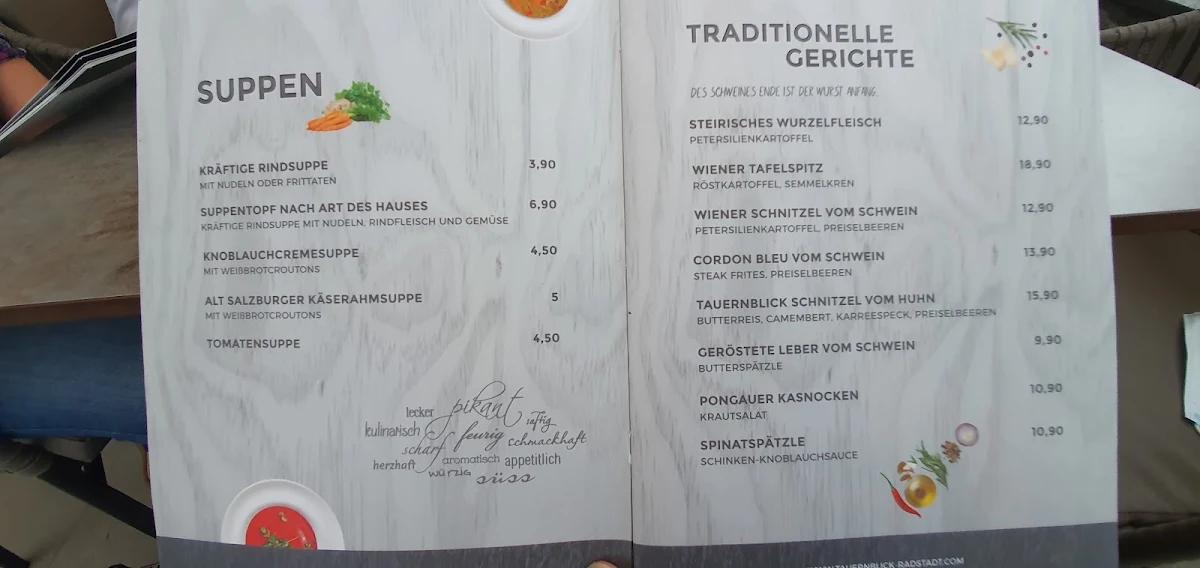 SUPPEN
KRÄFTIGE RINDSUPPE 3,90
MIT NUDELN ODER FRITTATEN
SUPPENTOPF NACH ART DES HAUSES 6,90
KRÄFTIGE RINDSUPPE MIT NUDELN, RINDFLEISCH UND GEMÜSE
KNOBLAUCHCREMESUPPE 4,50
MIT WEIßBROTCROUTONS
ALT SALZBURGER KÄSERAHMSUPPE 5
MIT WEIßBROTCROUTONS
TOMATENSUPPE 4,50
lecker pikant saftig
kulinarisch feurig schmackhaft
scharf
herzhaft aromatisch appetitlich
würzig süss
TRADITIONELLE
GERICHTE
DES SCHWEINES ENDE IST DER WURST ANFANG.
STEIRISCHES WURZELFLEISCH 12,90
PETERSILIENKARTOFFEL
WIENER TAFELSPITZ 18,90
RÖSTKARTOFFEL, SEMMELKREN
WIENER SCHNITZEL VOM SCHWEIN 12,90
PETERSILIENKARTOFFEL, PREISELBEEREN
CORDON BLEU VOM SCHWEIN 13,90
STEAK FRITES, PREISELBEEREN
TAUERNBLICK SCHNITZEL VOM HUHN 15,90
BUTTERREIS, CAMEMBERT, KARREESPECK, PREISELBEEREN
GERÖSTETE LEBER VOM SCHWEIN 9,90
BUTTERSPÄTZLE
PONGAUER KASNOCKEN 10,90
KRAUTSALAT
SPINATSPÄTZLE 10,90
SCHINKEN-KNOBLAUCHSAUCE
TAUERNBLICK-RADSTADT.COM